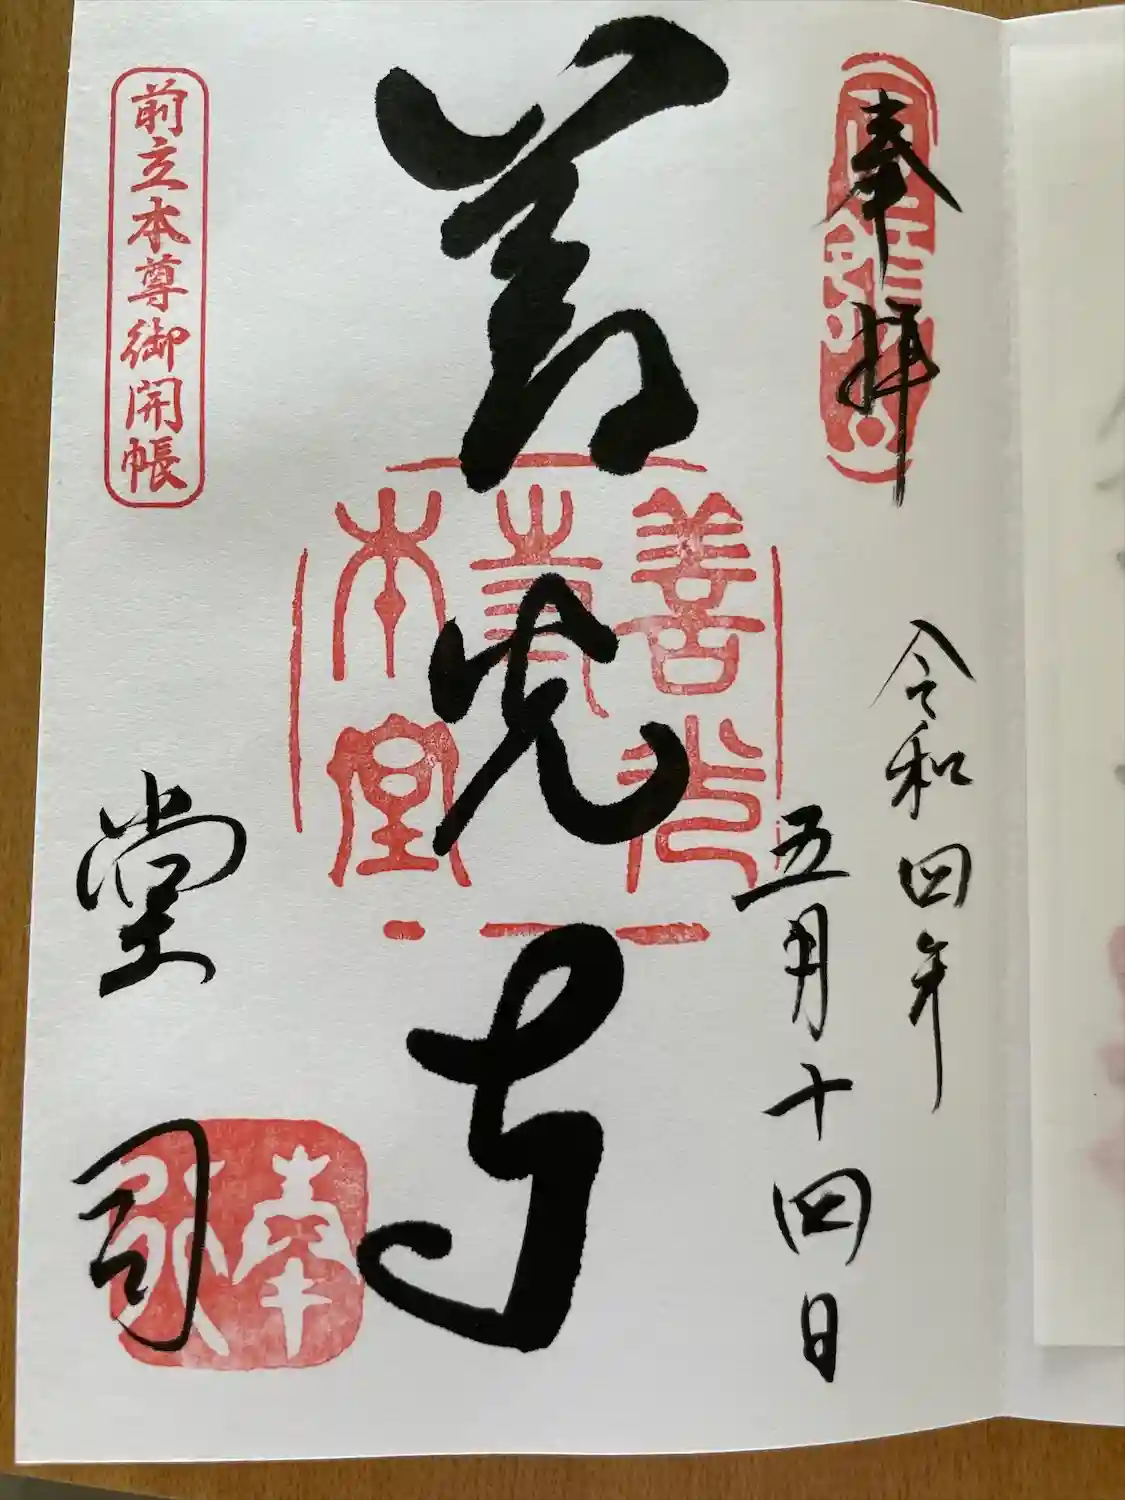 奉拝
令和四年
五月十四日
善光寺
善光
寺
本堂
前立本尊御開帳
堂司
奉